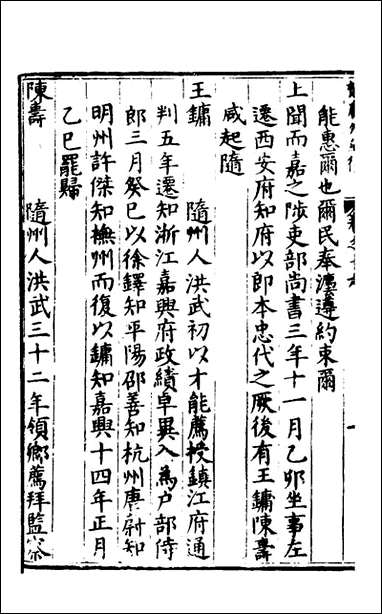 能惠爾也爾民奉灋遵約束爾
上聞而嘉之陟吏部尚書三年十一月乙卯坐事左
遷西安府知府以郎本忠代之厥後有王鏞陳壽
咸起隨
王鏞　　隨州人洪武初以才能薦授鎮江府通
判五年遷知浙江嘉興府政績卓異入為户部侍
郎三月癸巳以徐鐸知平陽邵善知杭州唐尉知
明州許傑知撫州而復以鏞知嘉興十四年正月
乙巳罷歸
陳壽　　隨州人洪武三十二年領鄉薦拜監察